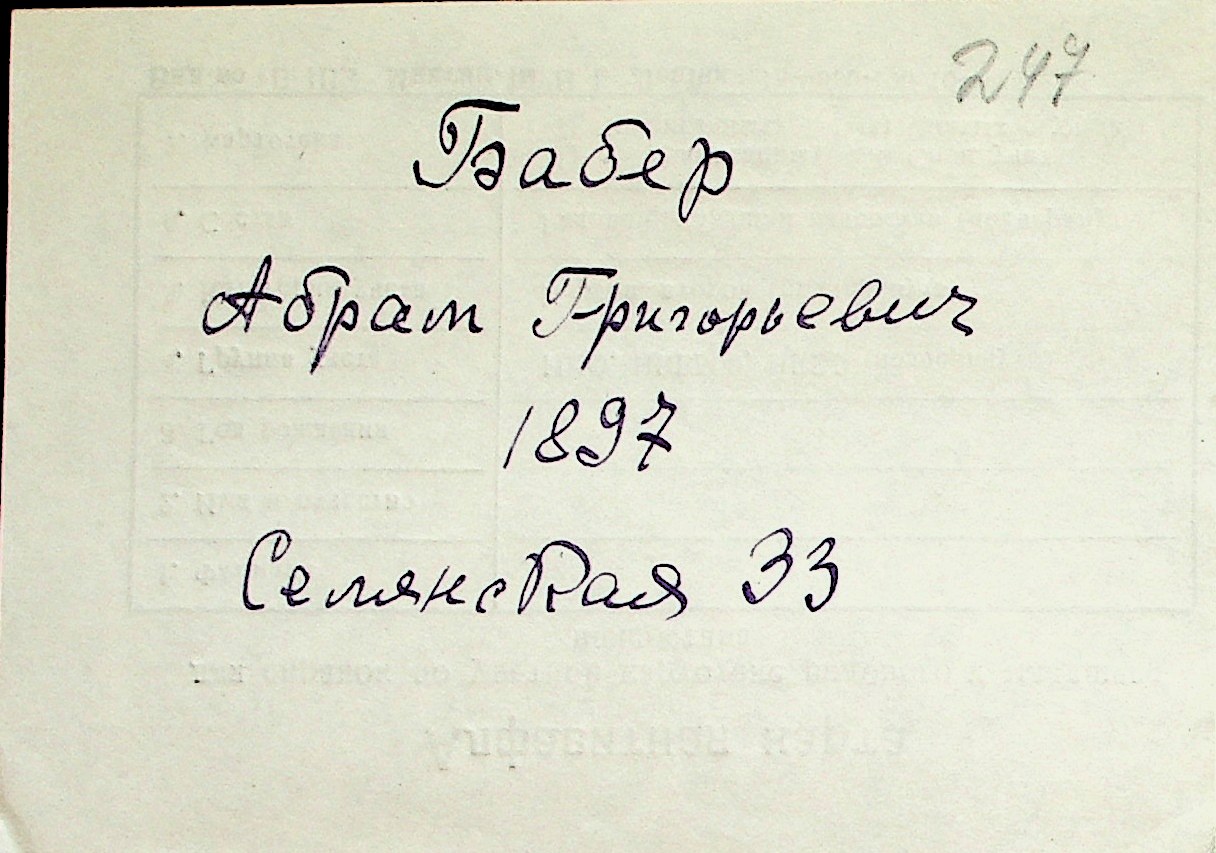 247
Бабер
Абрам Григорьевич
1897
Семянская 33